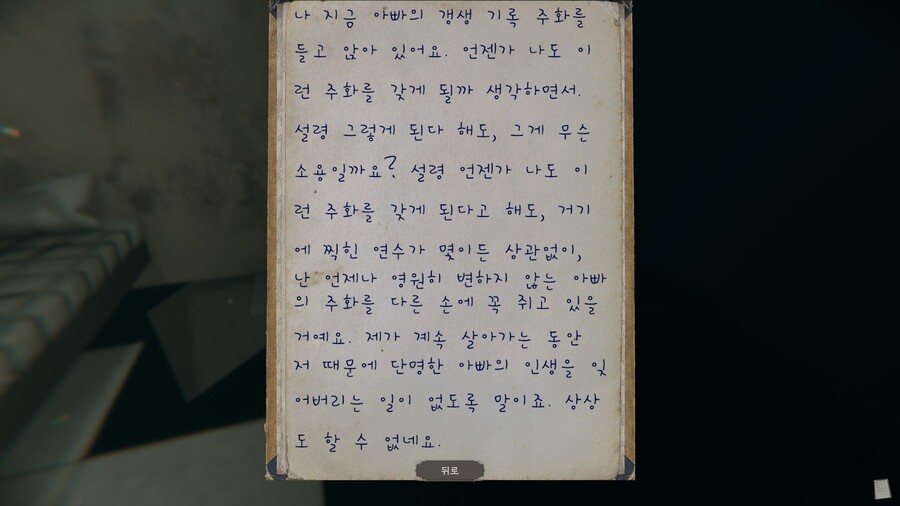 나 지금 아빠의 갱생 기록 주화를
들고 앉아 있어요. 언젠가 나도 이
런 주화를 갖게 될까 생각하면서.
설령 그렇게 된다 해도, 그게 무슨
소용일까요? 설령 언젠가 나도 이
런 주화를 갖게 된다고 해도, 거기
에 찍힌 연수가 몇이든 상관없이,
난 언제나 영원히 변하지 않는 아빠
의 주화를 다른 손에 꼭 쥐고 있을
거예요. 제가 계속 살아가는 동안
저 때문에 단명한 아빠의 인생을 잊
어버리는 일이 없도록 말이죠. 상상
도 할 수 없네요.
뒤로